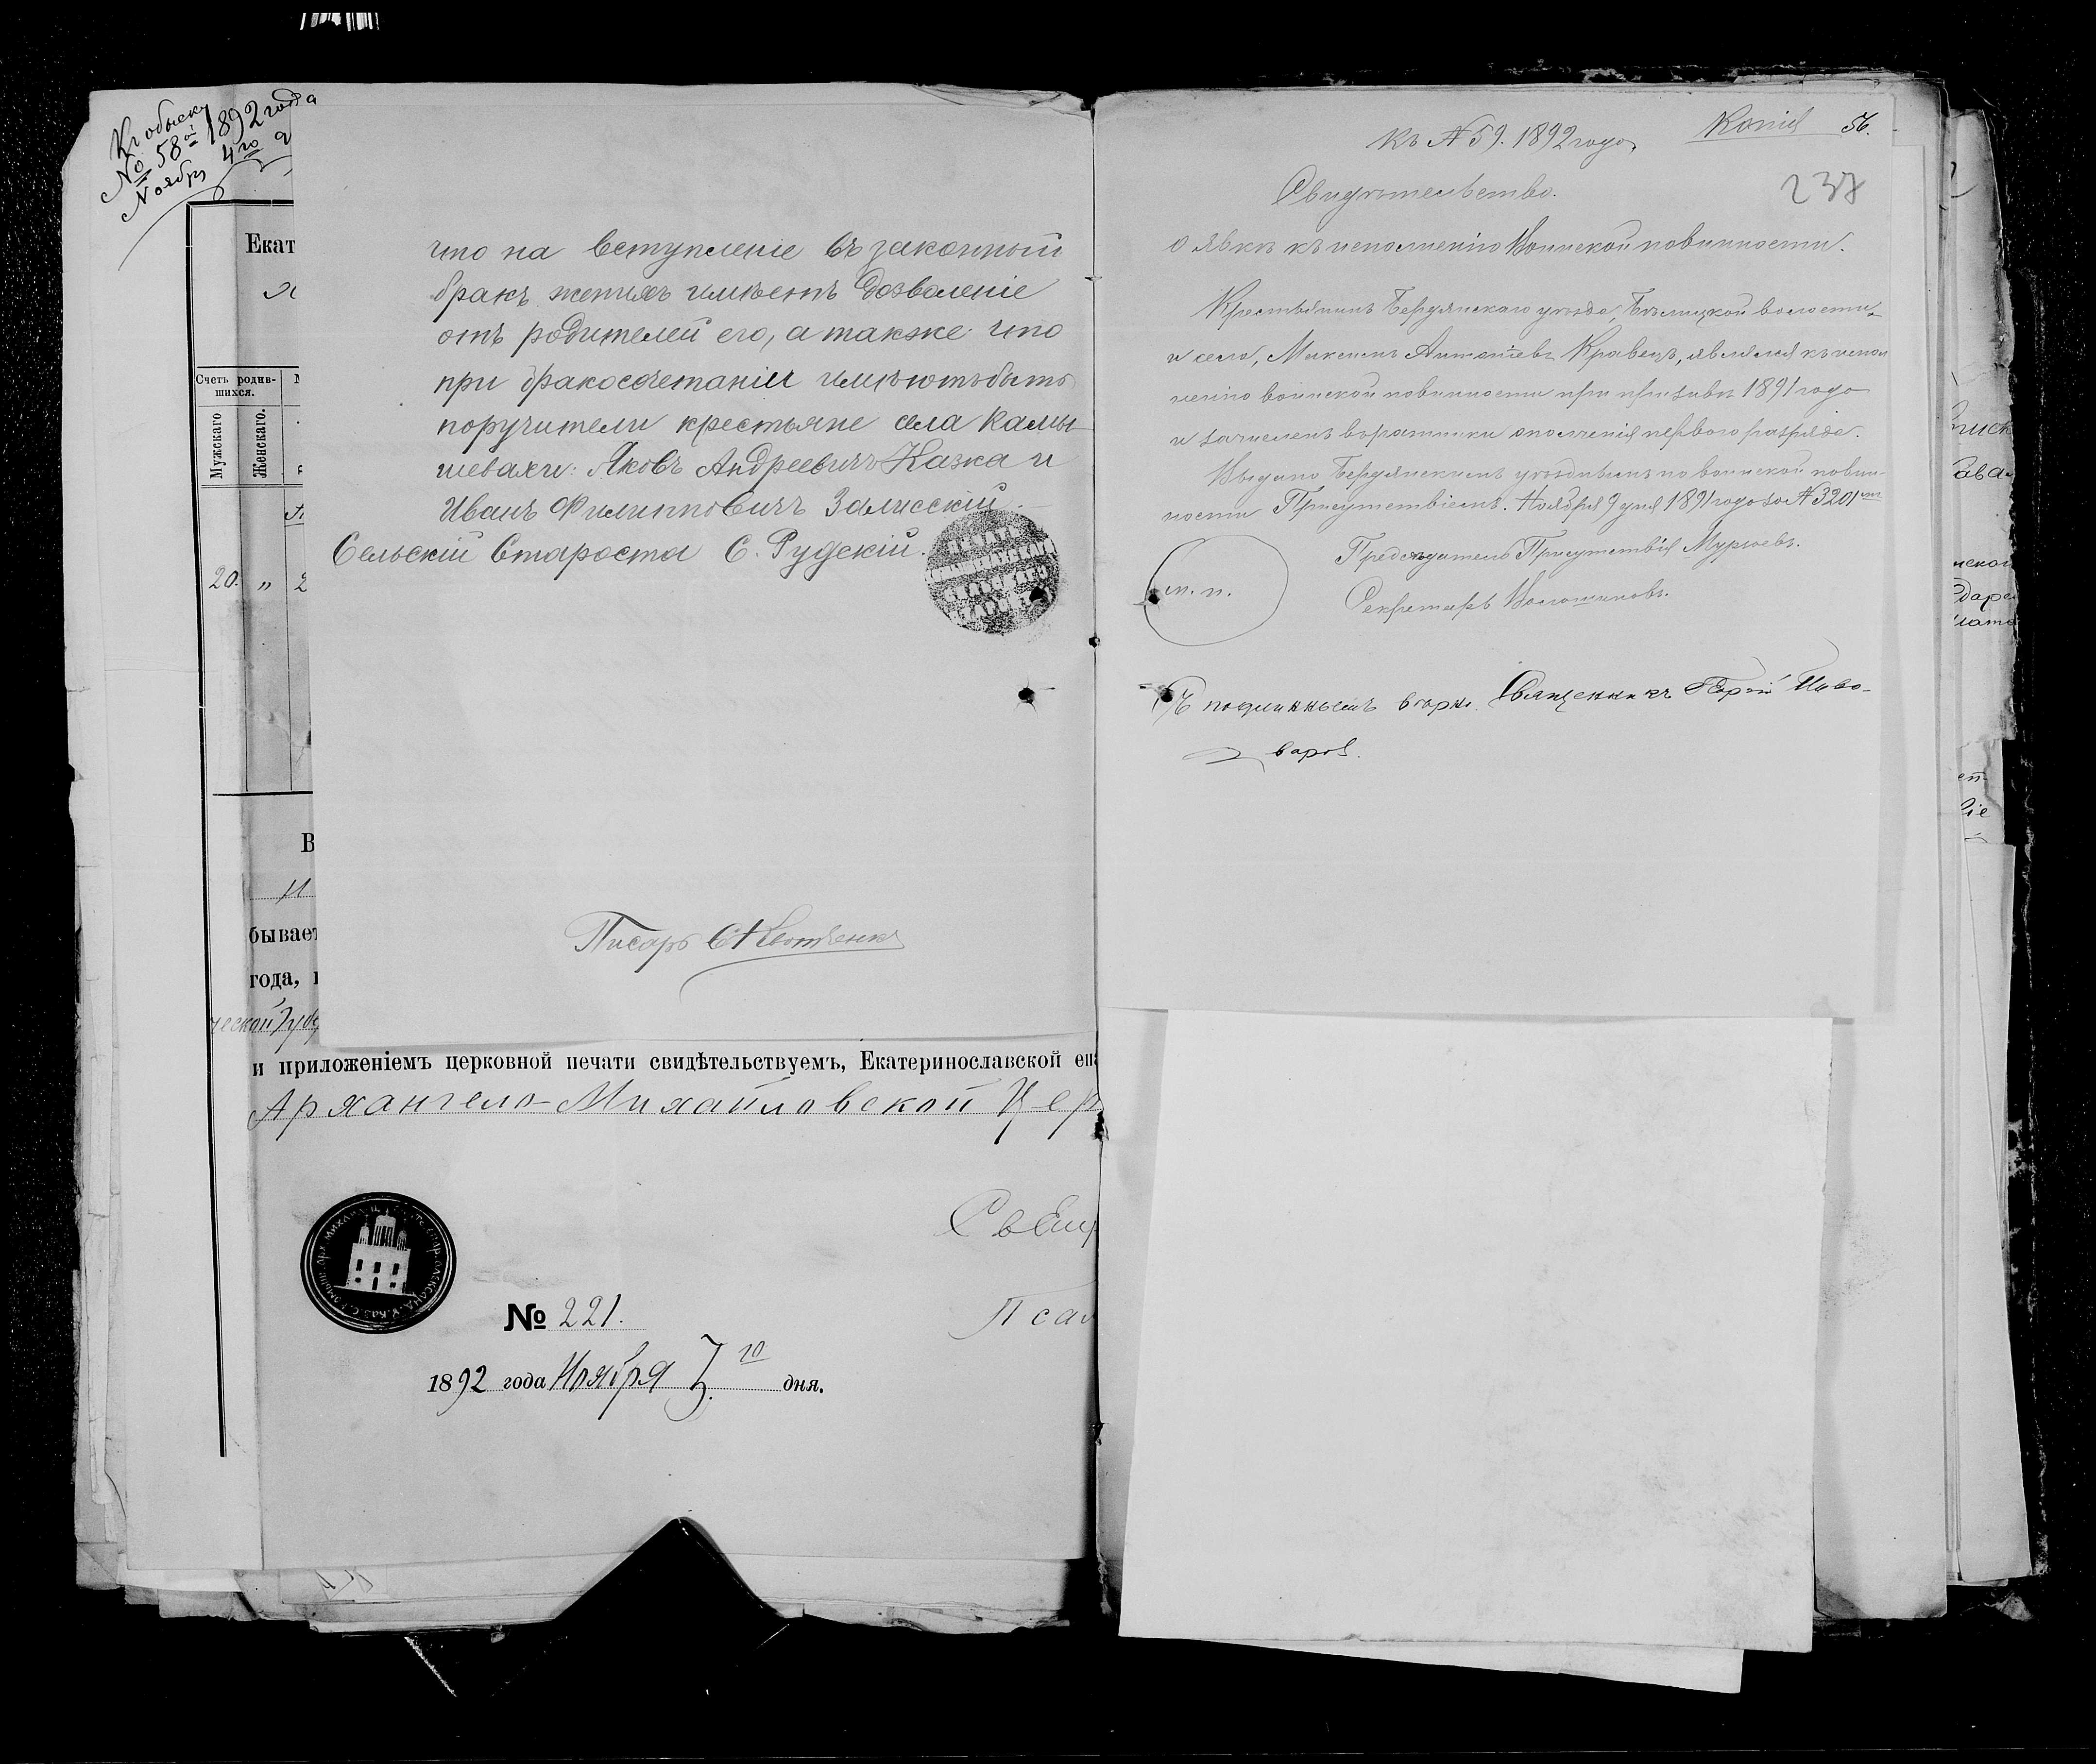 Къ обыску
№ 58й 1892 года
Ноября 4го
Екат
Счетъ родив-
шихся.
Мужскаго
Женскаго.
20. „ 2
что на вступленіе въ законный
бракъ женихъ имѣетъ дозволеніе
отъ родителей его, а также что
при бракосочетаніи имѣютъ быть
поручители крестьяне села Камы-
шевахи: Яковъ Андреевичъ Казка и
Иванъ Филипповичъ Залисскій
Сельскій Староста С. Рудскій.
Писарь
В
бывает
года,
ческой Губ
и приложеніемъ церковной печати свидѣтельствуемъ, Екатеринославской епа
Архангело-Михайловской Цер
Свящ
№ 221.
Псал
1892 года Ноября 3.го дня.
Копія 56.
къ № 59. 1892 года
238
Свидѣтельство.
о явкѣ къ исполненію Воинской повинности.
Крестьянинъ Бердянскаго уѣзда, волости
и села, Максимъ Антоніевъ Кравецъ, являлся къ испол
ненію воинской повинности при призывѣ 1891 года
и зачисленъ въ ратники ополченія перваго разряда.
Выдано Бердянскимъ уѣзднымъ по воинской повин-
ности Присутствіемъ. Ноября 9 дня 1891 года за № 3201мъ
Предсѣдатель Присутствія
м. п.
Секретарь Волошиновъ.
Съ подлиннымъ вѣрно. Священникъ Пиво-
варовъ.